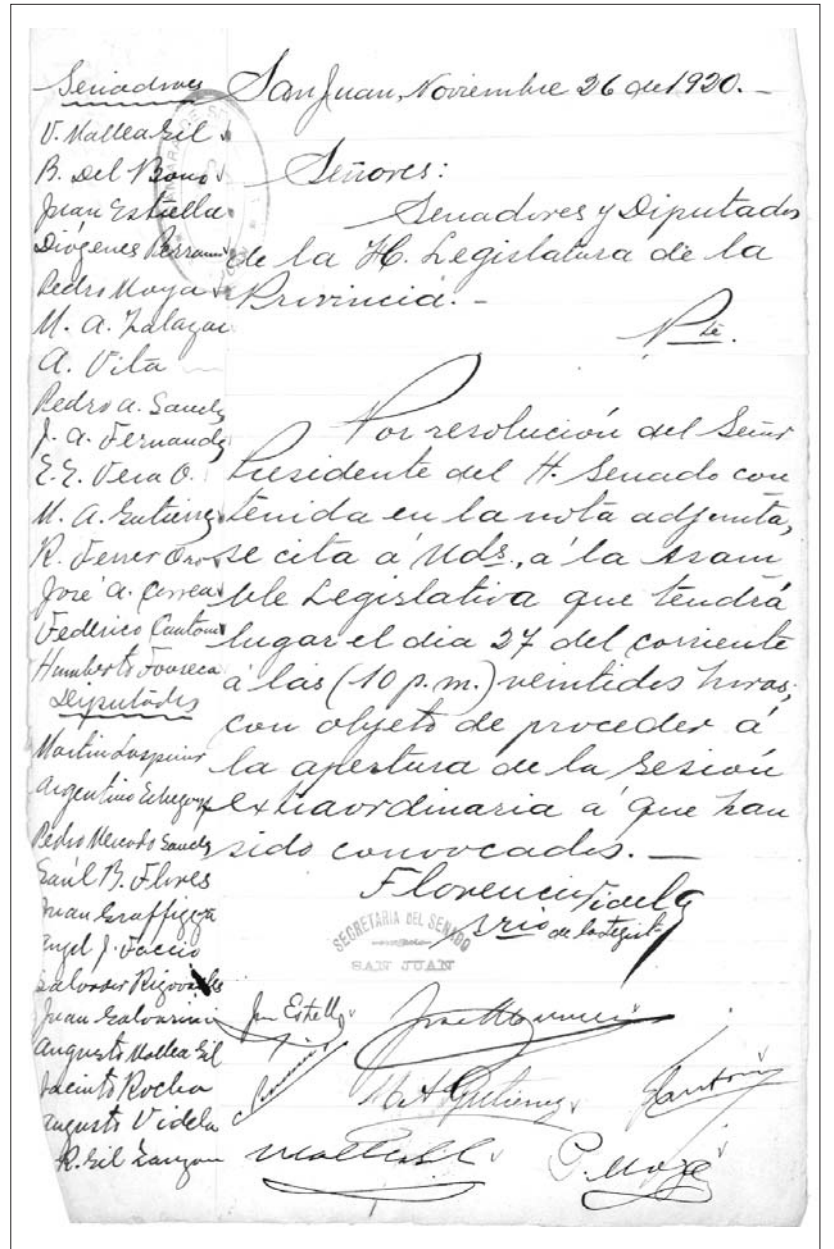 Senadores
V. Mallea Gil
B. Del Bono
Juan Estrella
Diógenes Perramó
Pedro Moya
M. A. Zalazar
A. Vita
Pedro A. Sanchz
J. A. Fernandz
E. E. Vera O.
M. A. Gutierrez
R. Ferrer Oro
José A. Correa
Federico Cantoni
Humberto Fonseca
Deiputados
Martin
Argentino
Pedro Mercado Sanchz
Saúl B. Flores
Juan Graffigna
Angel J. Faccio
Salvador
Juan Galvarini
Augusto Mallea Gil
Jacinto Rocha
Augusto Videla
R. Gil Lanzon
San Juan, Noviembre 26 de 1920.-
Señores:
Senadores y Diputados
de la H. Legislatura de la
Provincia.-
Pte.
Por resolución del Señor
Presidente del H. Senado con
tenida en la nota adjunta,
se cita á Uds., a' la Asam
ble Legislativa que tendrá
lugar el dia 27 del corriente
á las (10 p.m.) veintidos horas,
con objeto de proceder á
la apertura de la sesión
extraordinaria á que han
sido convocados.-
Florencio Videla
Srio de la Legist.
SECRETARIA DEL SENADO
SAN JUAN
Jn Estrella
M A Gutierrez
Cantoni
Mallea Gil
P. Moya